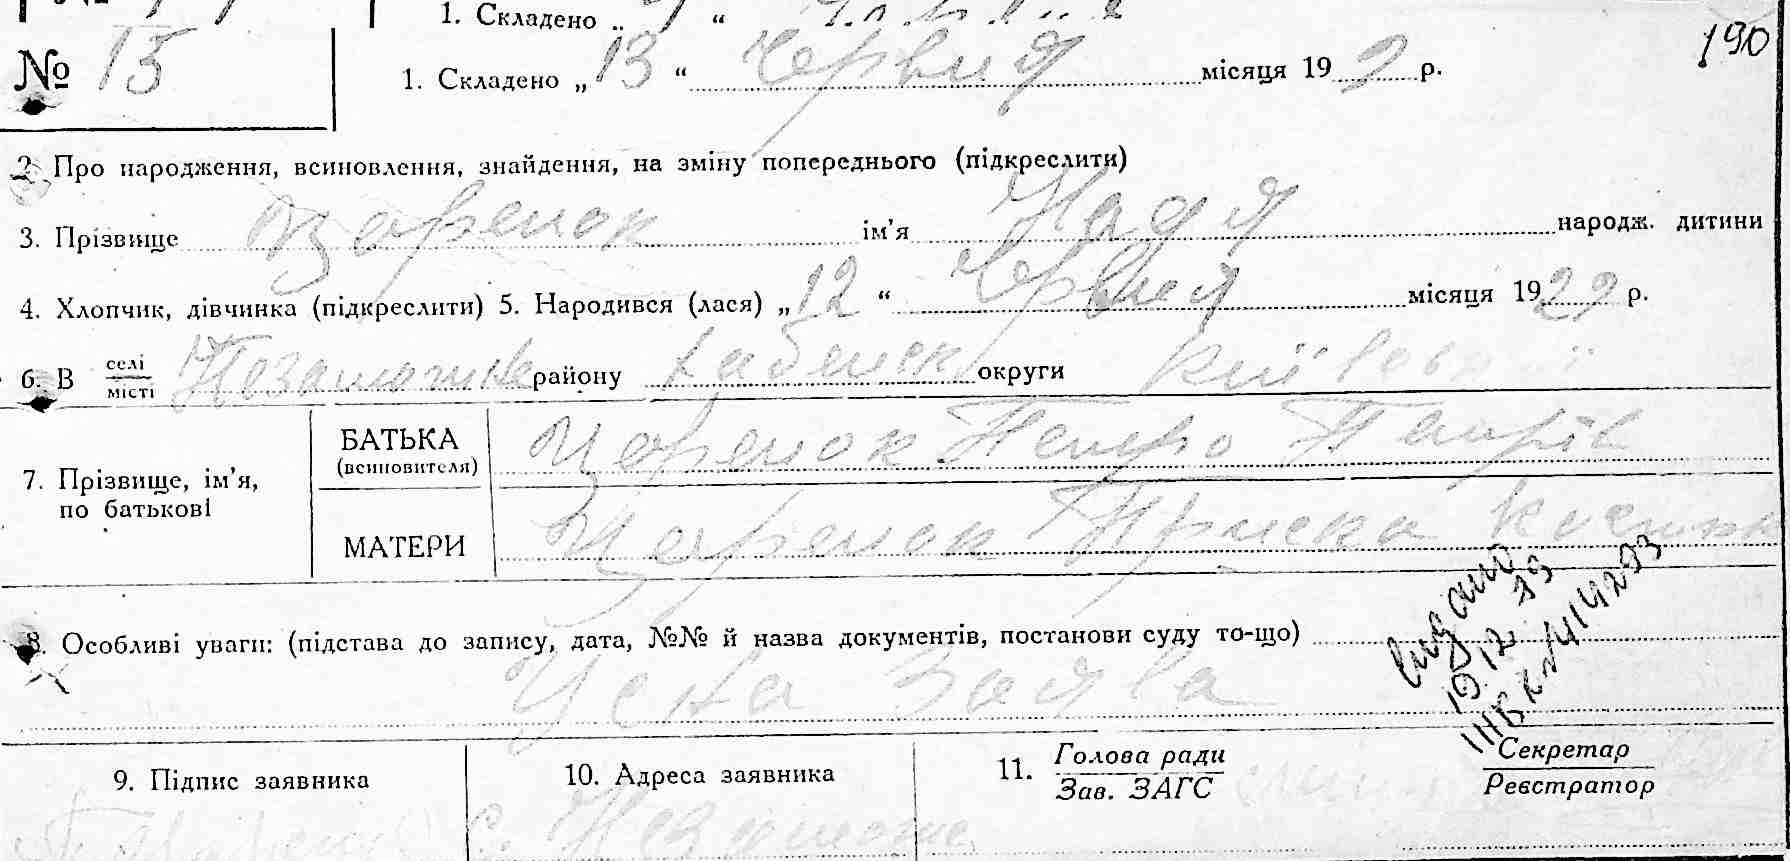 1. Складено „ “
№ 15 1. Складено „13“ Червня місяця 19 9 р. 190
2. Про народження, всиновлення, знайдення, на зміну попереднього (підкреслити)
3. Прізвище Царенок ім’я Надя народж. дитини
4. Хлопчик, дівчинка (підкреслити) 5. Народився (лася) „12“ Червня місяця 1929 р.
6. В селі/місті району округи
7. Прізвище, ім’я, по батькові
БАТЬКА (всиновителя) Царенок Петро Петрів
МАТЕРИ Царенок Приска
8. Особливі уваги: (підстава до запису, дата, №№ й назва документів, постанови суду то-що)
Усна Заява
19.12
9. Підпис заявника 10. Адреса заявника 11. Голова ради/Зав. ЗАГС Секретар/Реєстратор
с.